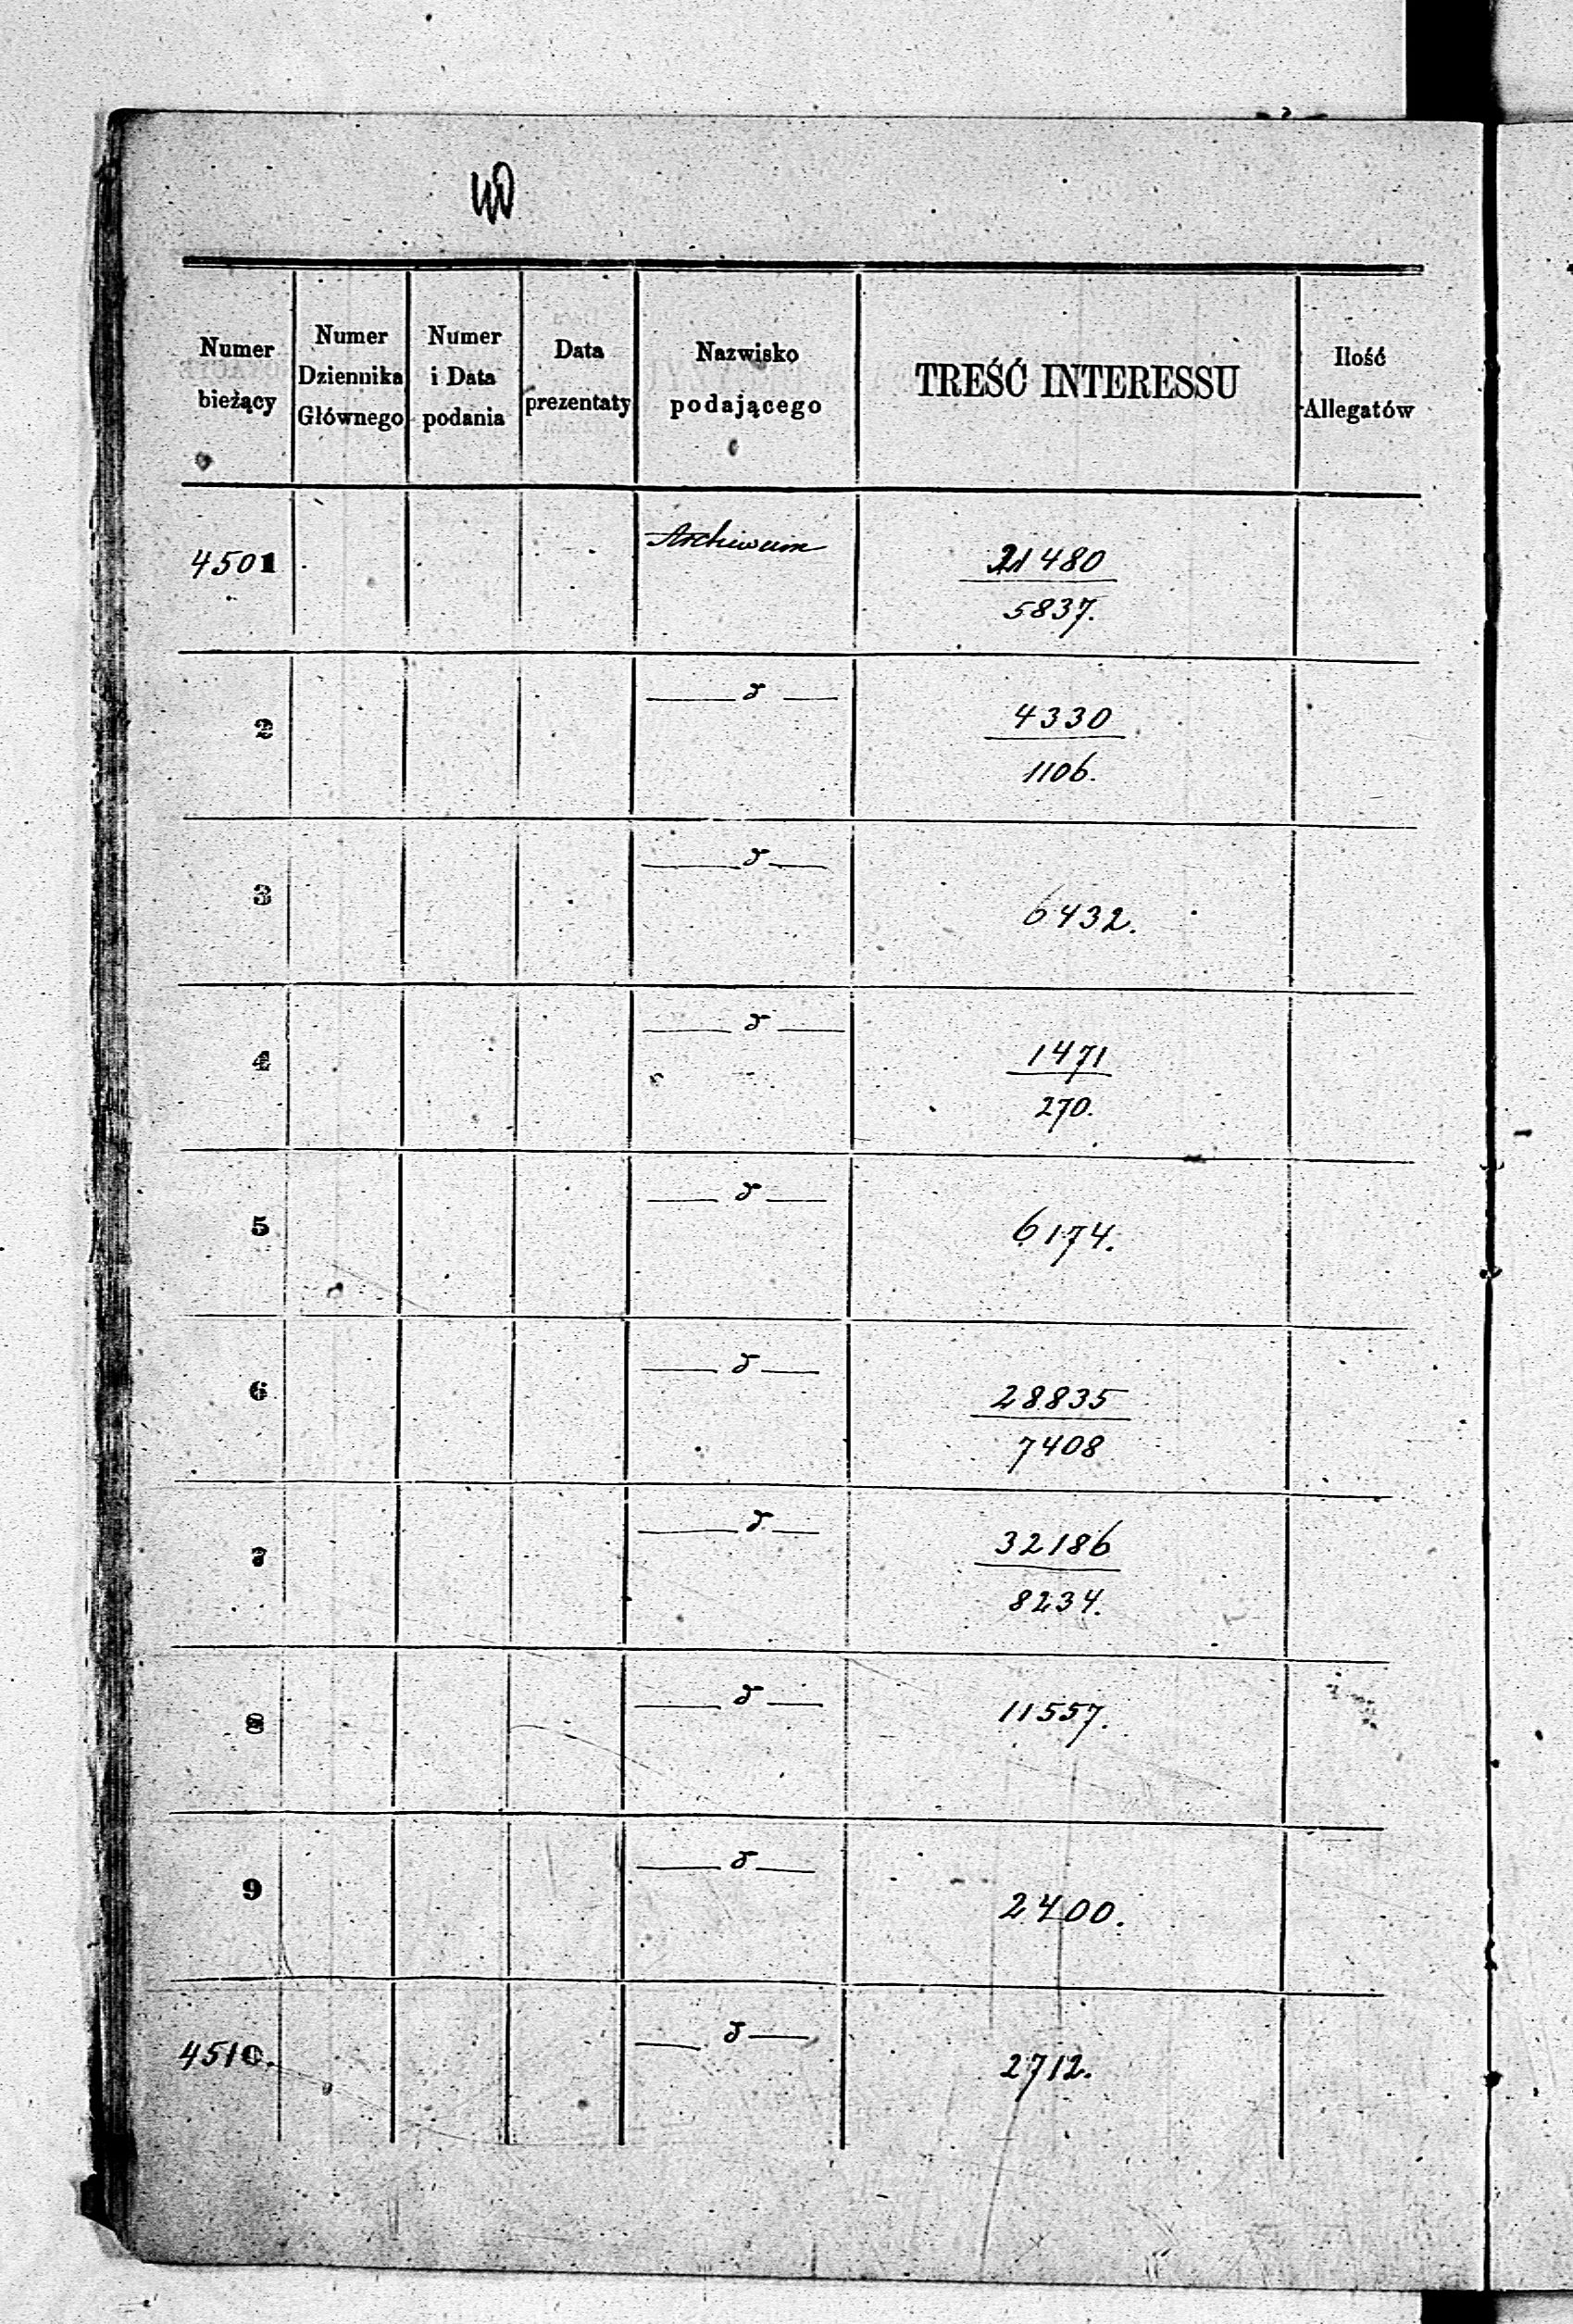 Numer bieżący
Numer Dziennika Głównego
Numer i Data podania
Data prezentaty
Nazwisko podającego
TREŚĆ INTERESSU
Ilość Allegatów
4501 Archiwum 21480
5837.
2 δ 4330
1106.
3 δ 6432.
4 δ 1471
270.
5 δ 6174.
6 δ 28835
7408
7 δ 32186
8234.
8 δ 11557.
9 δ 2400.
4510. δ 2712.